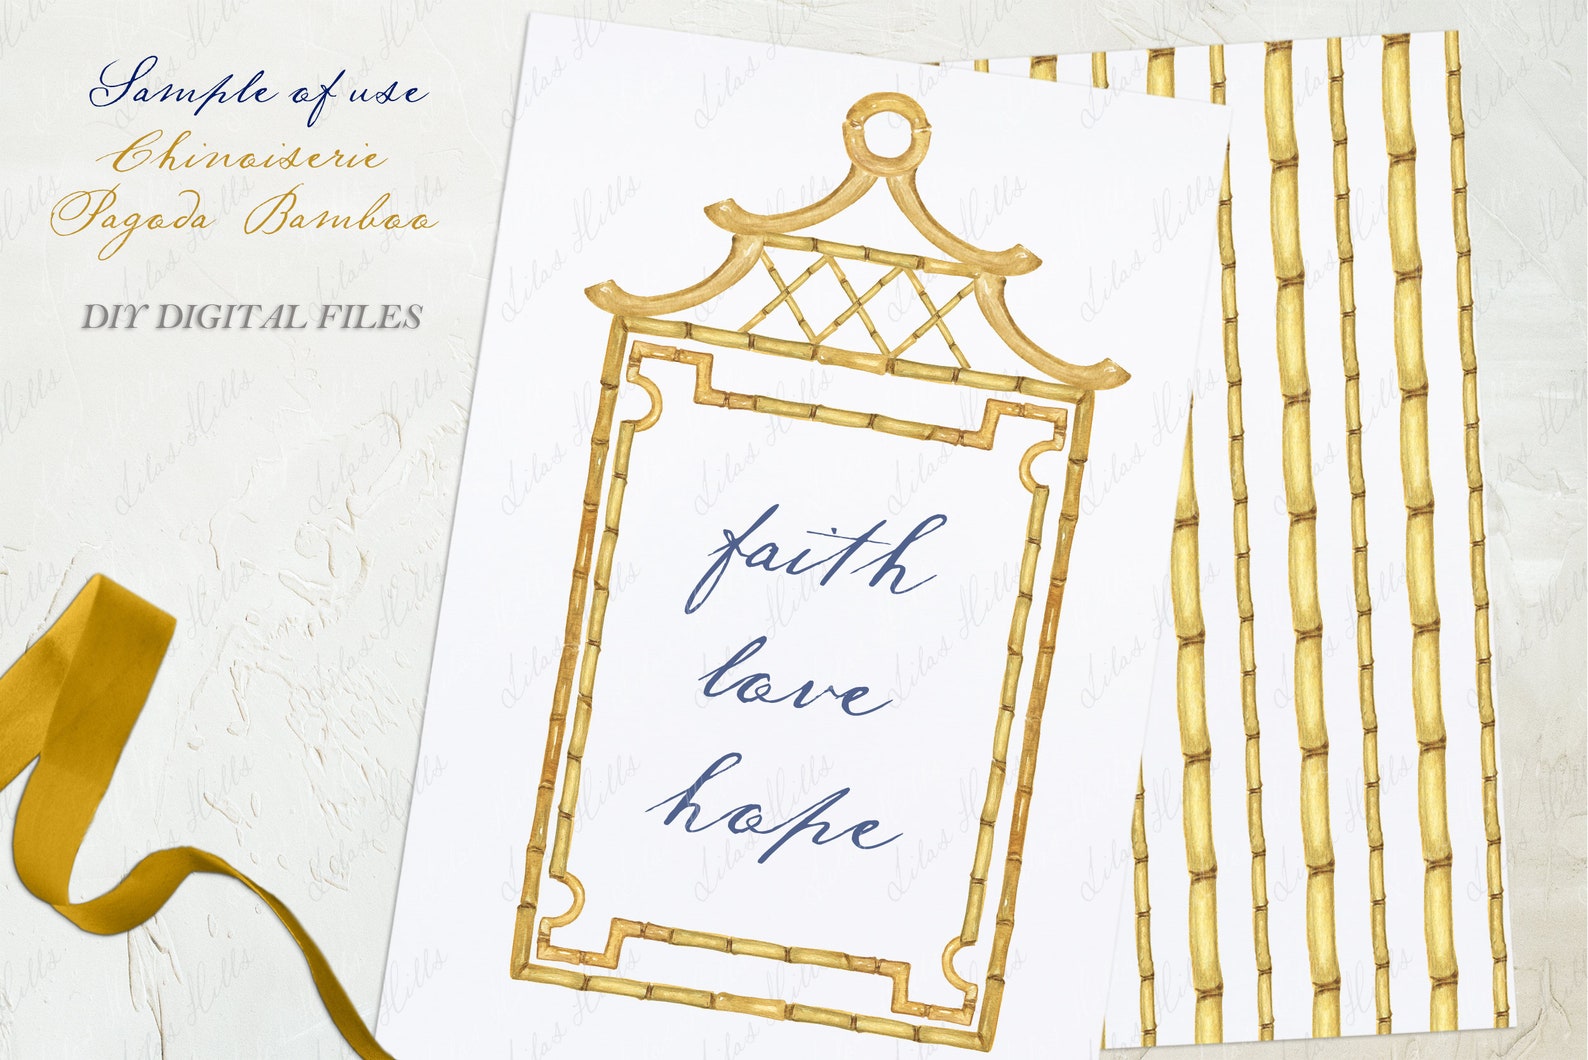 Sample of use
Chinoiserie
Pagoda Bamboo
DIY DIGITAL FILES
faith
love
hope
Lilas Hills